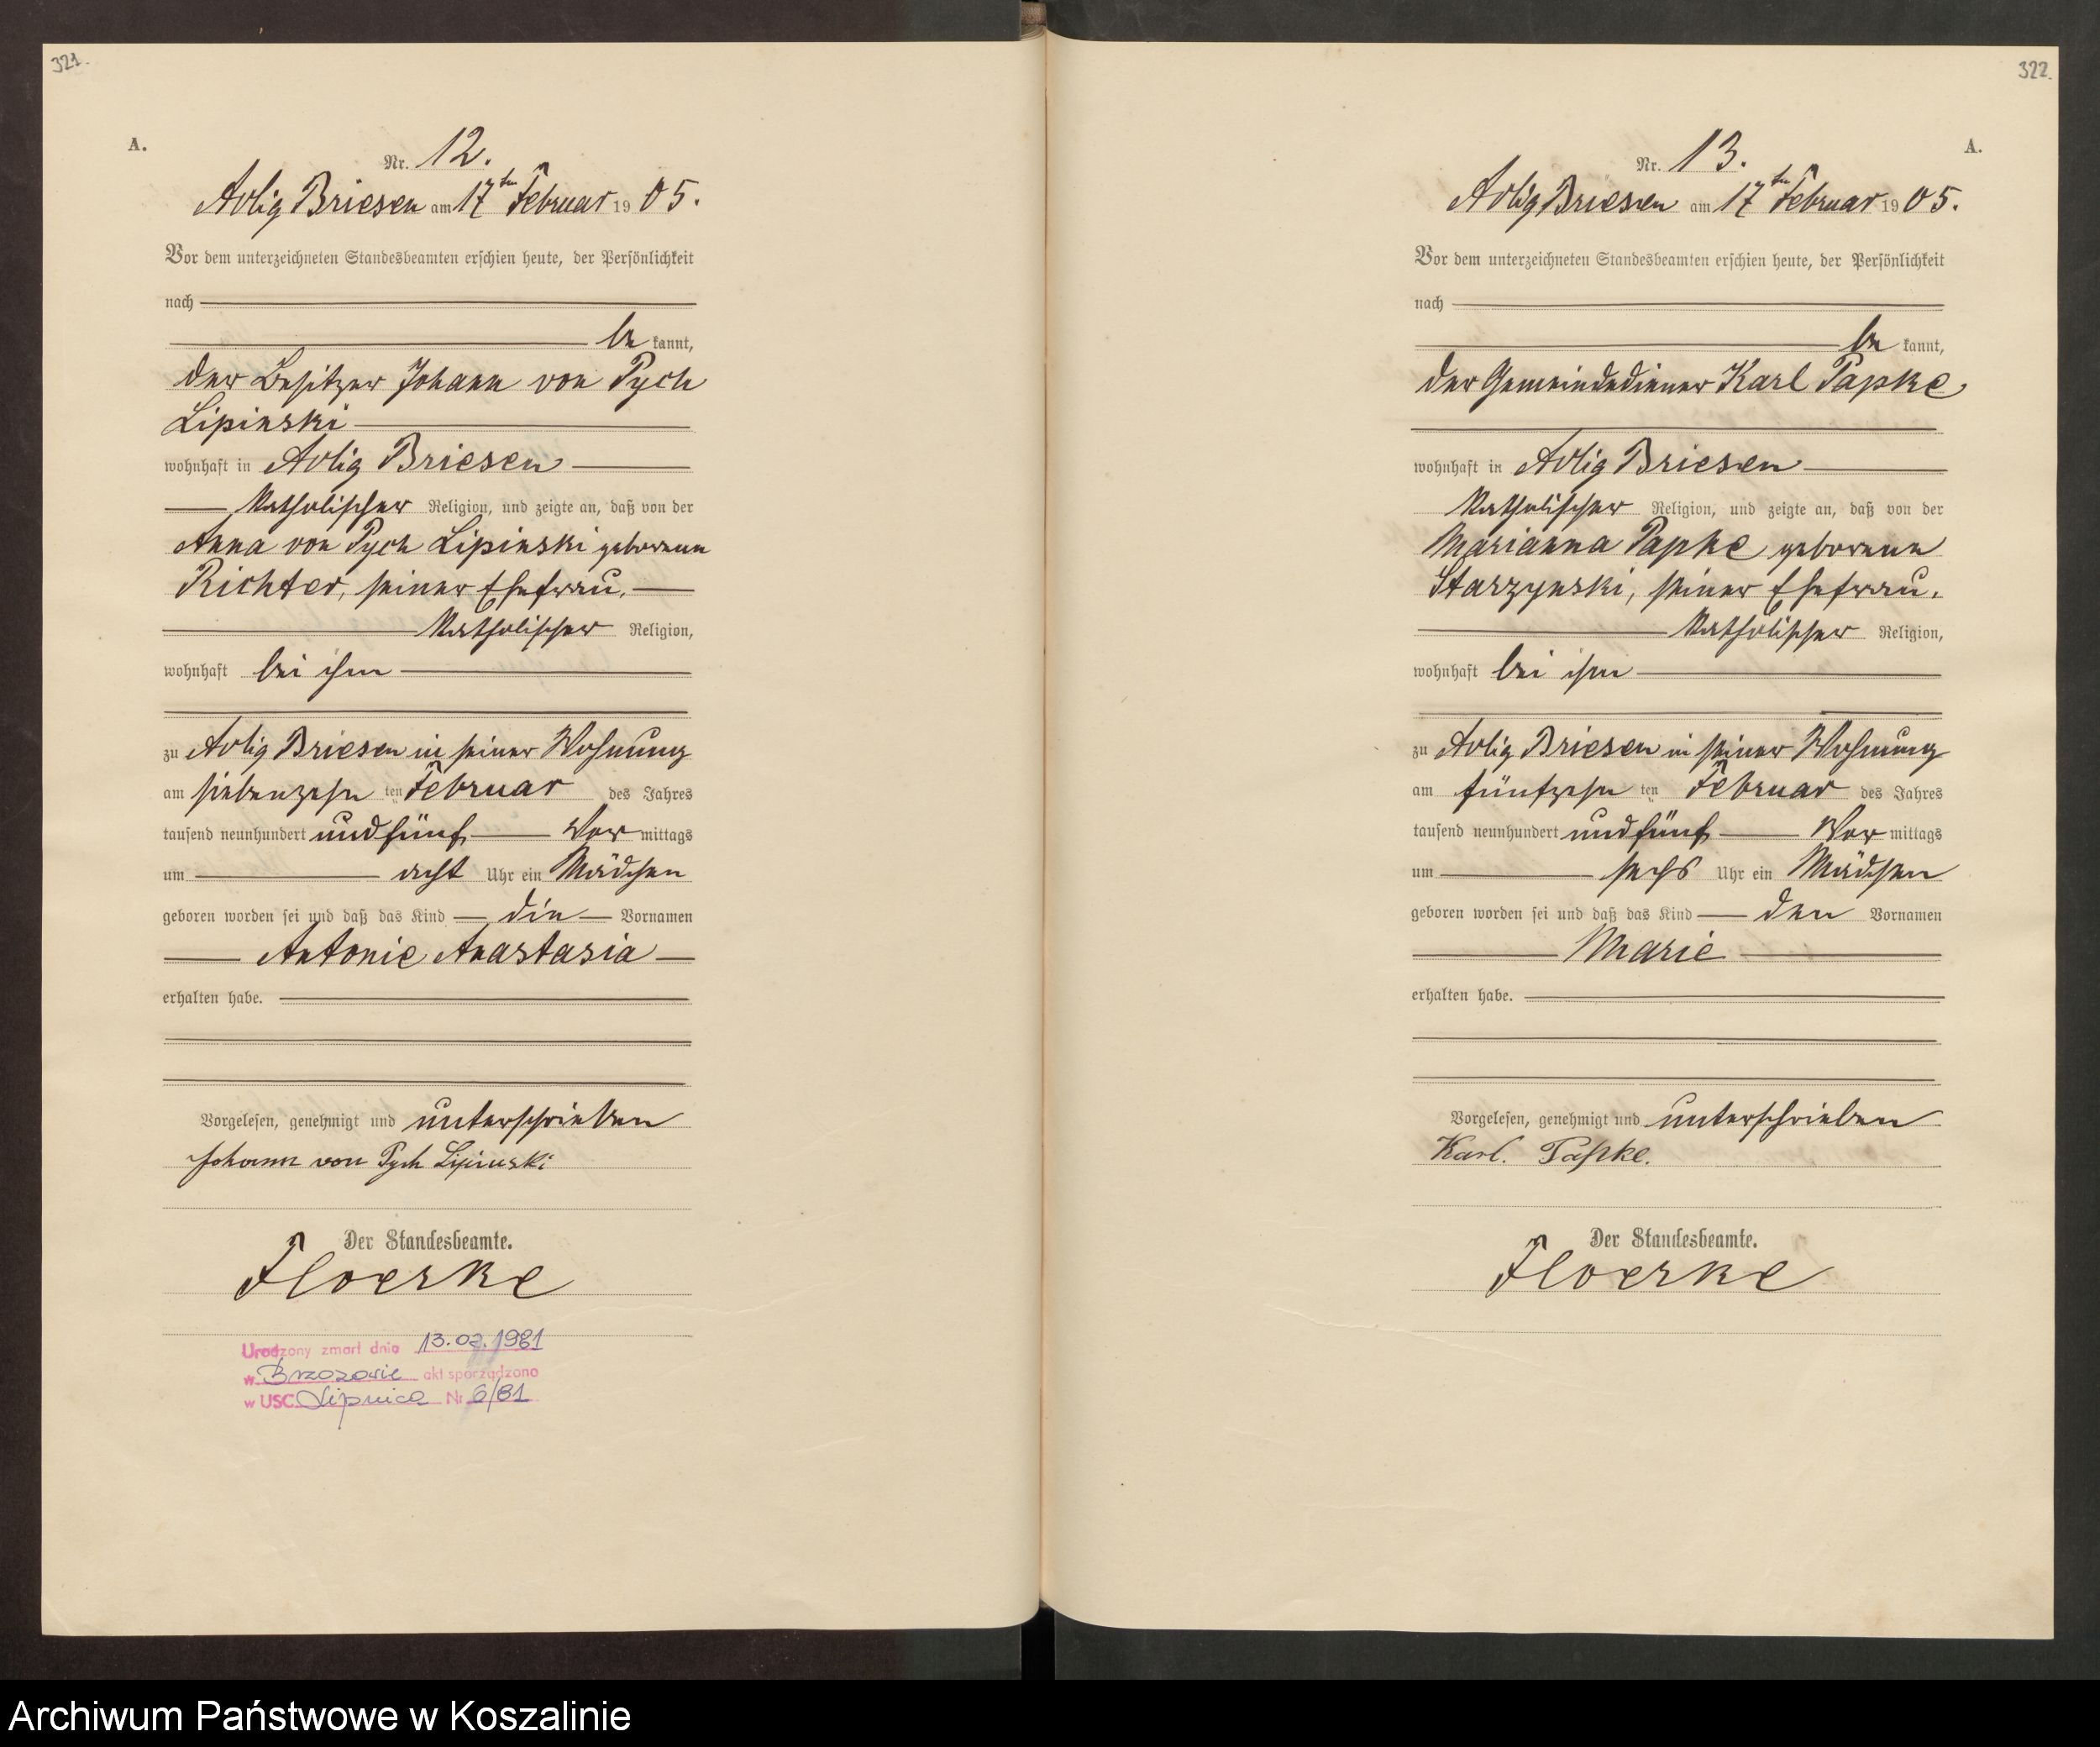 321.
A.
Nr. 12.
Adlig Briesen am 17ten Februar 1905.
Vor dem unterzeichneten Standesbeamten erschien heute, der Persönlichkeit
nach
be kannt,
der Besitzer Johann von Pych
Lipinski
wohnhaft in Adlig Briesen
katholischer Religion, und zeigte an, daß von der
Anna von Pych Lipinski geborenen
Richter, seiner Ehefrau,
katholischer Religion,
wohnhaft bei ihm
zu Adlig Briesen in seiner Wohnung
am siebenzehn ten Februar des Jahres
tausend neunhundert und fünf Vor mittags
um acht Uhr ein Mädchen
geboren worden sei und daß das Kind die Vornamen
Antonie Anastasia
erhalten habe.
Vorgelesen, genehmigt und unterschrieben
Johann von Pych Lipinski
Der Standesbeamte.
Floerke
Urodzony zmarł dnia 13.02.1981
w Brzozowie akt sporządzono
w USC Lipnica Nr 6/81
322.
A.
Nr. 13.
Adlig Briesen am 17ten Februar 1905.
Vor dem unterzeichneten Standesbeamten erschien heute, der Persönlichkeit
nach
be kannt,
der Gemeindediener Karl Papke
wohnhaft in Adlig Briesen
katholischer Religion, und zeigte an, daß von der
Marianna Papke geborenen
Starzynski, seiner Ehefrau,
katholischer Religion,
wohnhaft bei ihm
zu Adlig Briesen in seiner Wohnung
am fünfzehn ten Februar des Jahres
tausend neunhundert und fünf Vor mittags
um sechs Uhr ein Mädchen
geboren worden sei und daß das Kind den Vornamen
Marie
erhalten habe.
Vorgelesen, genehmigt und unterschrieben
Karl. Papke.
Der Standesbeamte.
Floerke
Archiwum Państwowe w Koszalinie